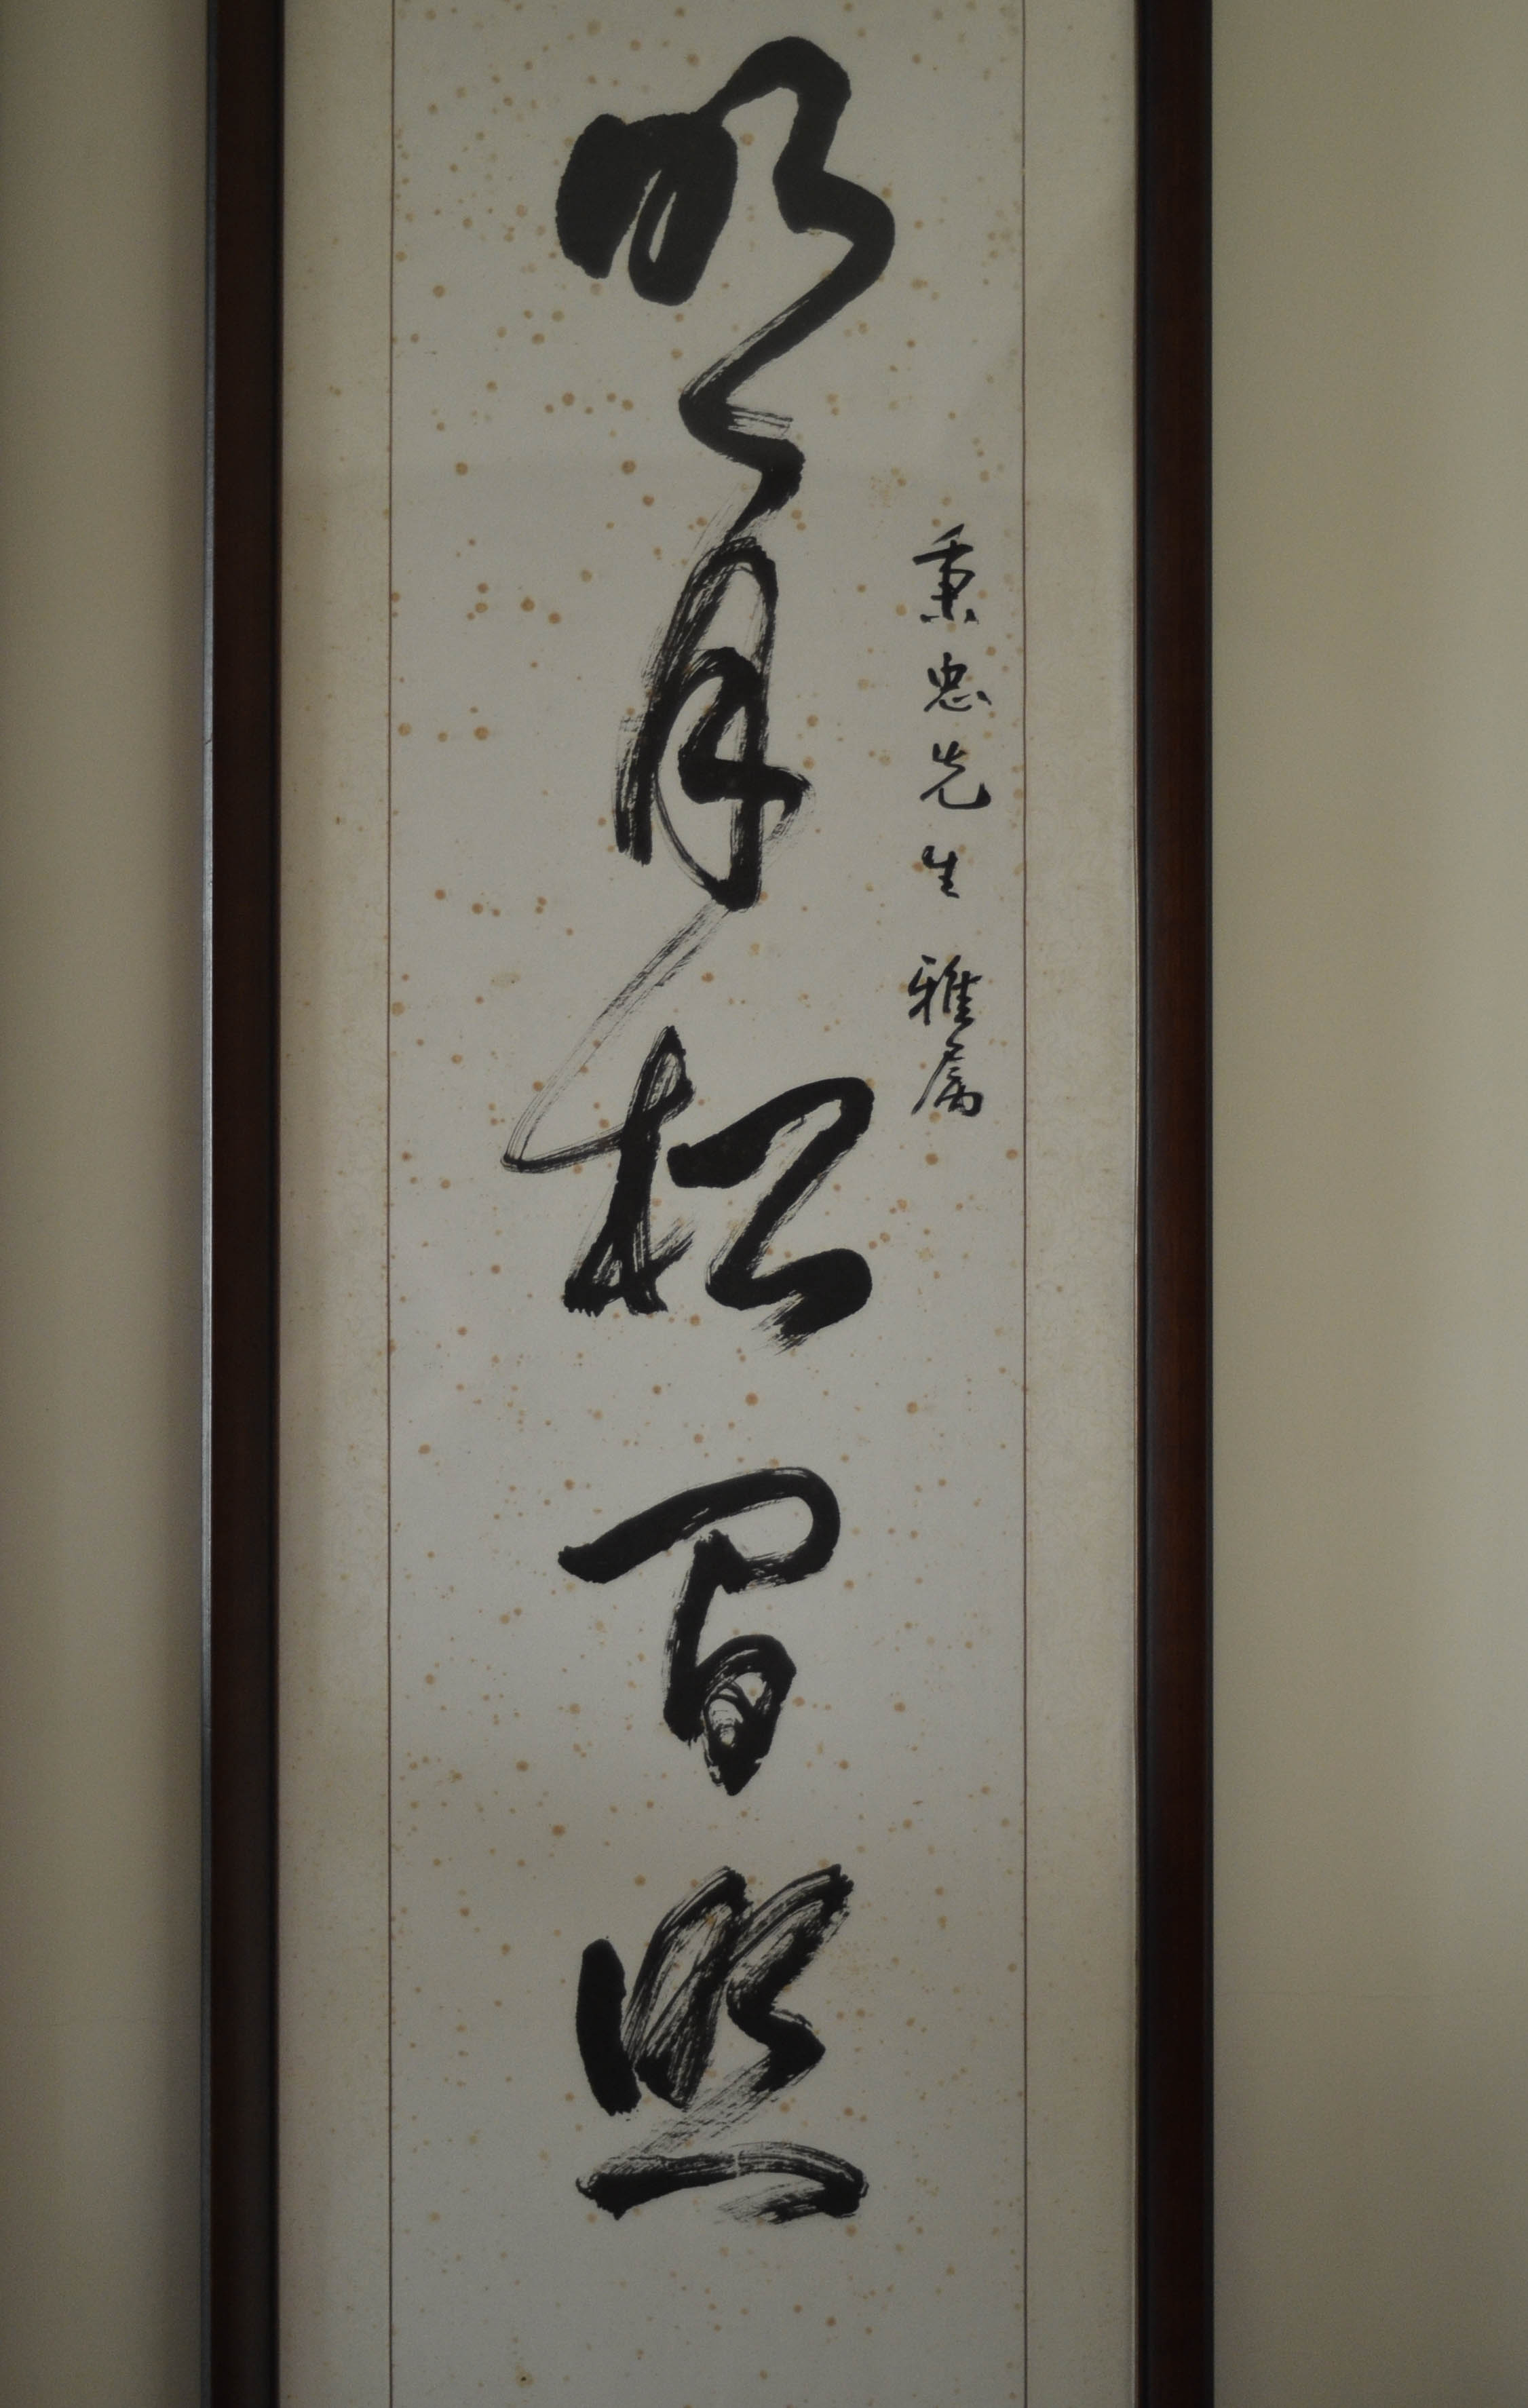 秉忠先生 雅属
明月松間照